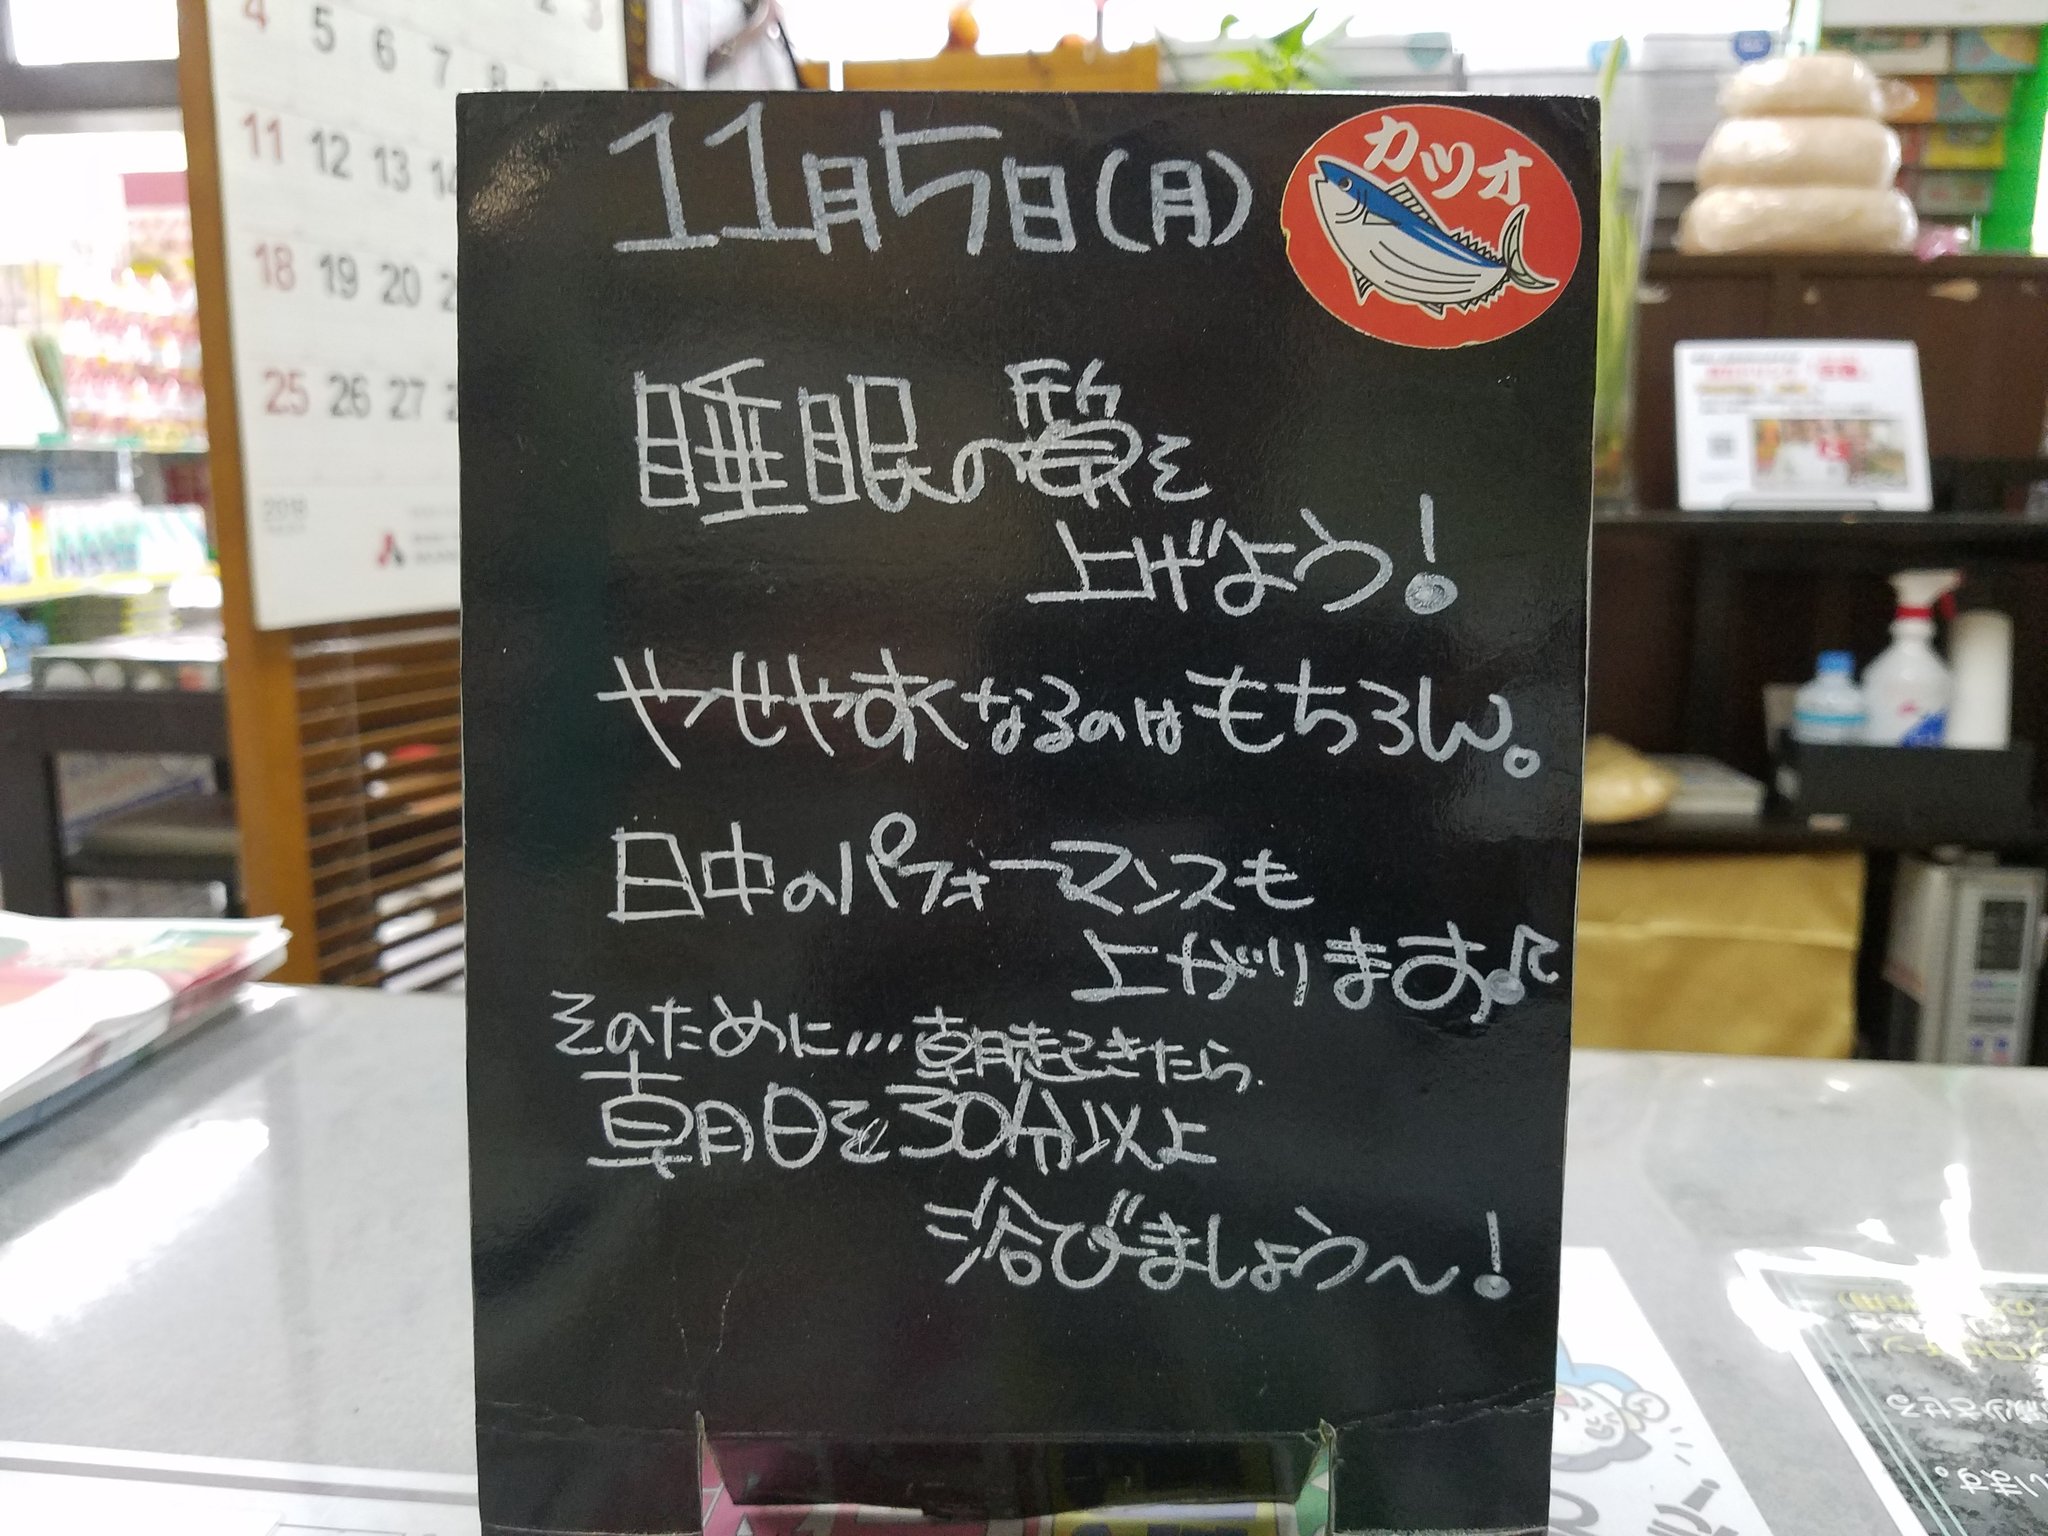 11月5日(月)
カツオ
睡眠の質を
上げよう!
やせやすくなるのはもちろん。
日中のパフォーマンスも
上がります♪
そのために…朝起きたら
朝日を30分以上
浴びましょう〜!
4 5 6 7 8
11 12 13
18 19 20
25 26 27